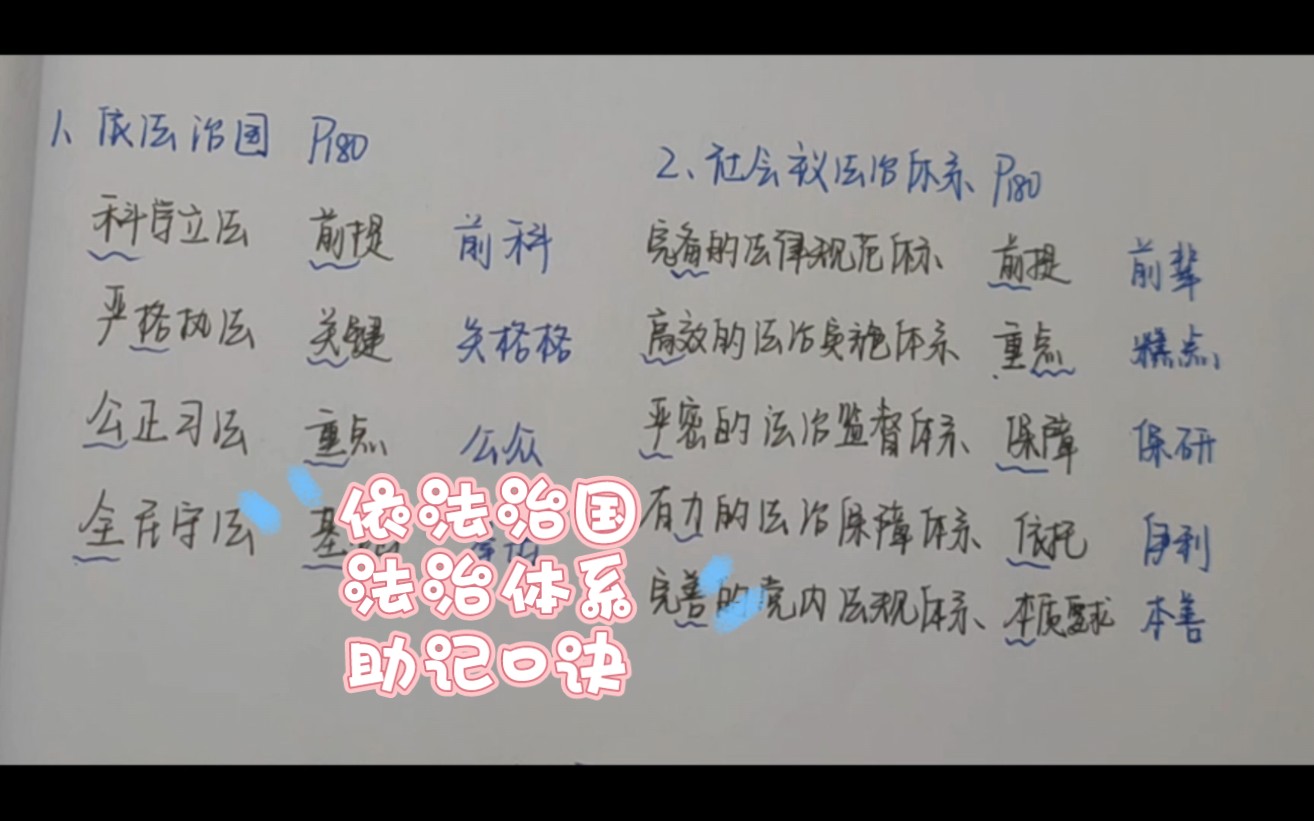 1、依法治国 P180
科学立法 前提 前科
严格执法 关键 关格格
公正习法 重点 公众
全民守法 基
2、社会议法治体系 P180
完备的法律规范体系 前提 前辈
高效的法治实施体系 重点 糕点
严密的法治监督体系 保障 保研
有力的法治保障体系 依托
完善的党内法规体系 本质要求 本善
依法治国
法治体系
助记口诀